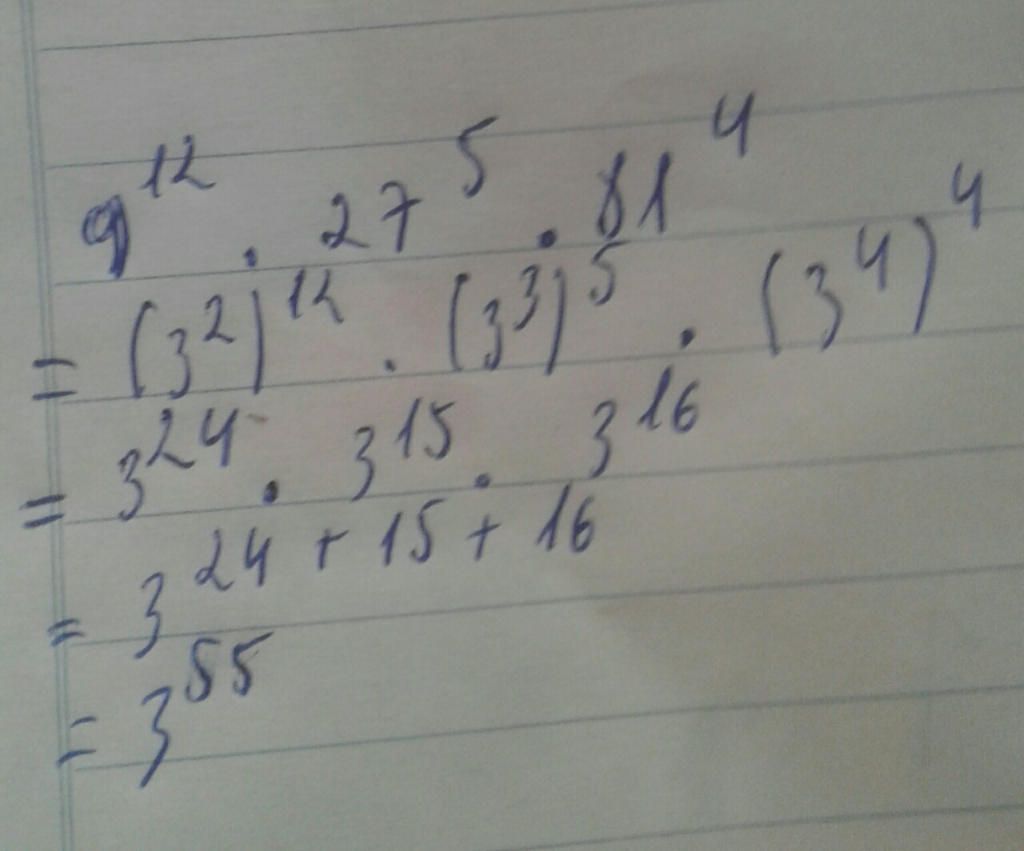 9^12 . 27^5 . 81^4
= (3^2)^12 . (3^3)^5 . (3^4)^4
= 3^24 . 3^15 . 3^16
= 3^24 + 15 + 16
= 3^55